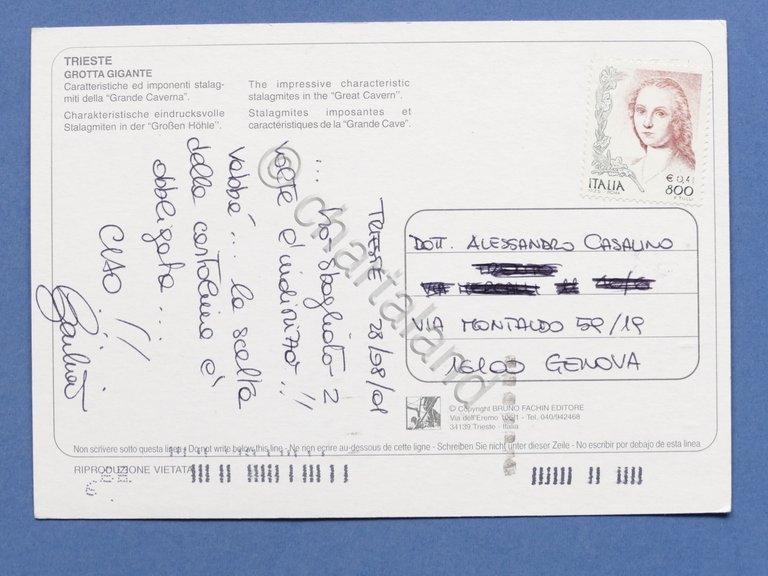 TRIESTE
GROTTA GIGANTE
Caratteristiche ed imponenti stalag-
miti della "Grande Caverna".
Charakteristische eindrucksvolle
Stalagmiten in der "Großen Höhle".
The impressive characteristic
stalagmites in the "Great Cavern".
Stalagmites imposantes et
caractéristiques de la "Grande Cave".
ITALIA
€ 0,41
800
TRIESTE 28/08/01
... ho sbagliato 2
volte l'indirizzo!!
vabbé... la scelta
della cartolina é
obbligata...
CIAO!!
DOTT. ALESSANDRO CASALINO
VIA
VIA MONTALDO 59/19
16100 GENOVA
© Copyright BRUNO FACHIN EDITORE
Via dell'Eremo 106/1 - Tel. 040/942468
34139 Trieste - Italia
Non scrivere sotto questa linea - Do not write below this line - Ne rien ecrire au-dessous de cette ligne - Schreiben Sie nicht unter dieser Zeile - No escribir por debajo de esta linea
RIPRODUZIONE VIETATA
© chartaland